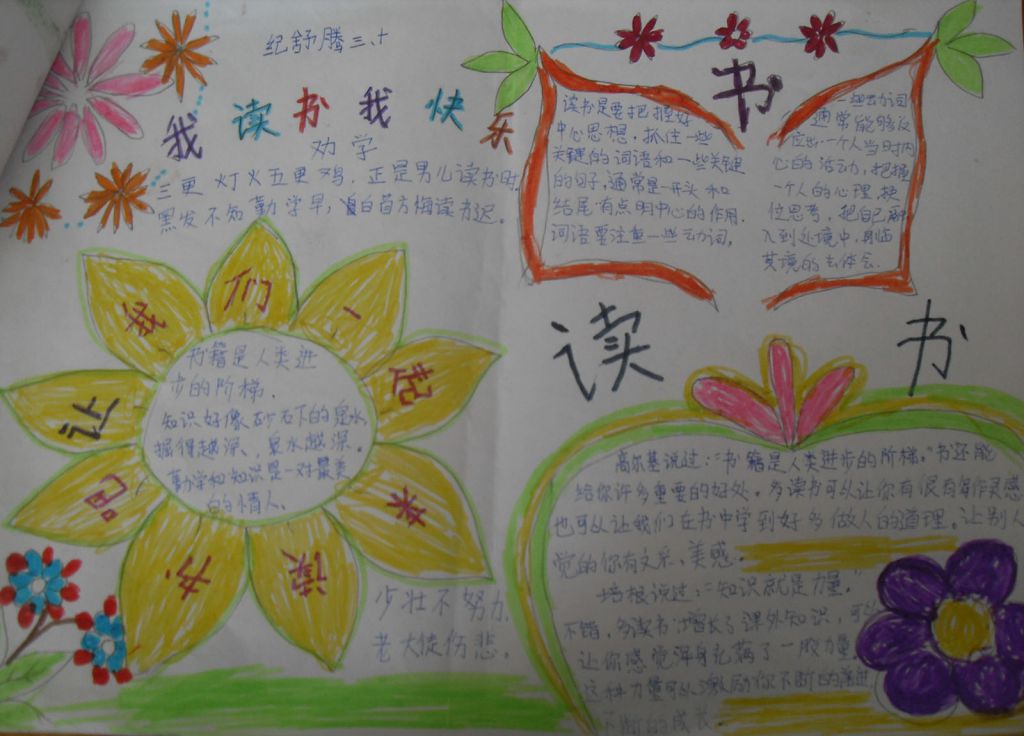 纪舒腾三、十
我读书我快乐
劝学
三更灯火五更鸡,正是男儿读书时,
黑发不知勤学早,白首方悔读书迟。
让我们一起来读书吧
书籍是人类进
步的阶梯.
知识好像砂石下的泉水,
掘得越深,泉水越深。
勤学和知识是一对最美
的情人.
少壮不努力,
老大徒伤悲。
书
读书是要把握好
中心思想,抓住一些
关键的词语和一些关键
的句子,通常是一开头和
结尾有点明中心的作用.
词语要注重一些动词,
一些动词
通常能够反
应出一个人当时内
心的活动,把握
一个人的心理,换
位思考,把自己融
入到处境中,身临
其境的去体会.
读书
高尔基说过:“书籍是人类进步的阶梯,”书还能
给你许多重要的好处。多读书可以让你有很有写作灵感
也可以让我们在书中学到好多做人的道理。让别人
觉的你有文采、美感。
培根说过:“知识就是力量。”
不错,多读书,增长了课外知识,可以
让你感觉浑身充满了一股力量
这种力量可以激励你不断的前进
不断的成长.